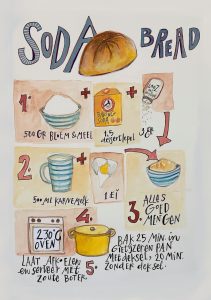 SODA BREAD
1.
500 GR BLOEM & MEEL
+
BAKING SODA
1,5 dessertlepel
+
SALT
3 GR
2.
500 ML KARNEMELK
+
1 EI
3. ALLES GOED MENGEN
230°C OVEN
4.
BAK 25 MIN. in
GIETIJZEREN PAN
MET DEKSEL, 20 MIN.
ZONDER deksel.
5.
LAAT AFKOELEN
en serveer MET
ZOUTE BOTER